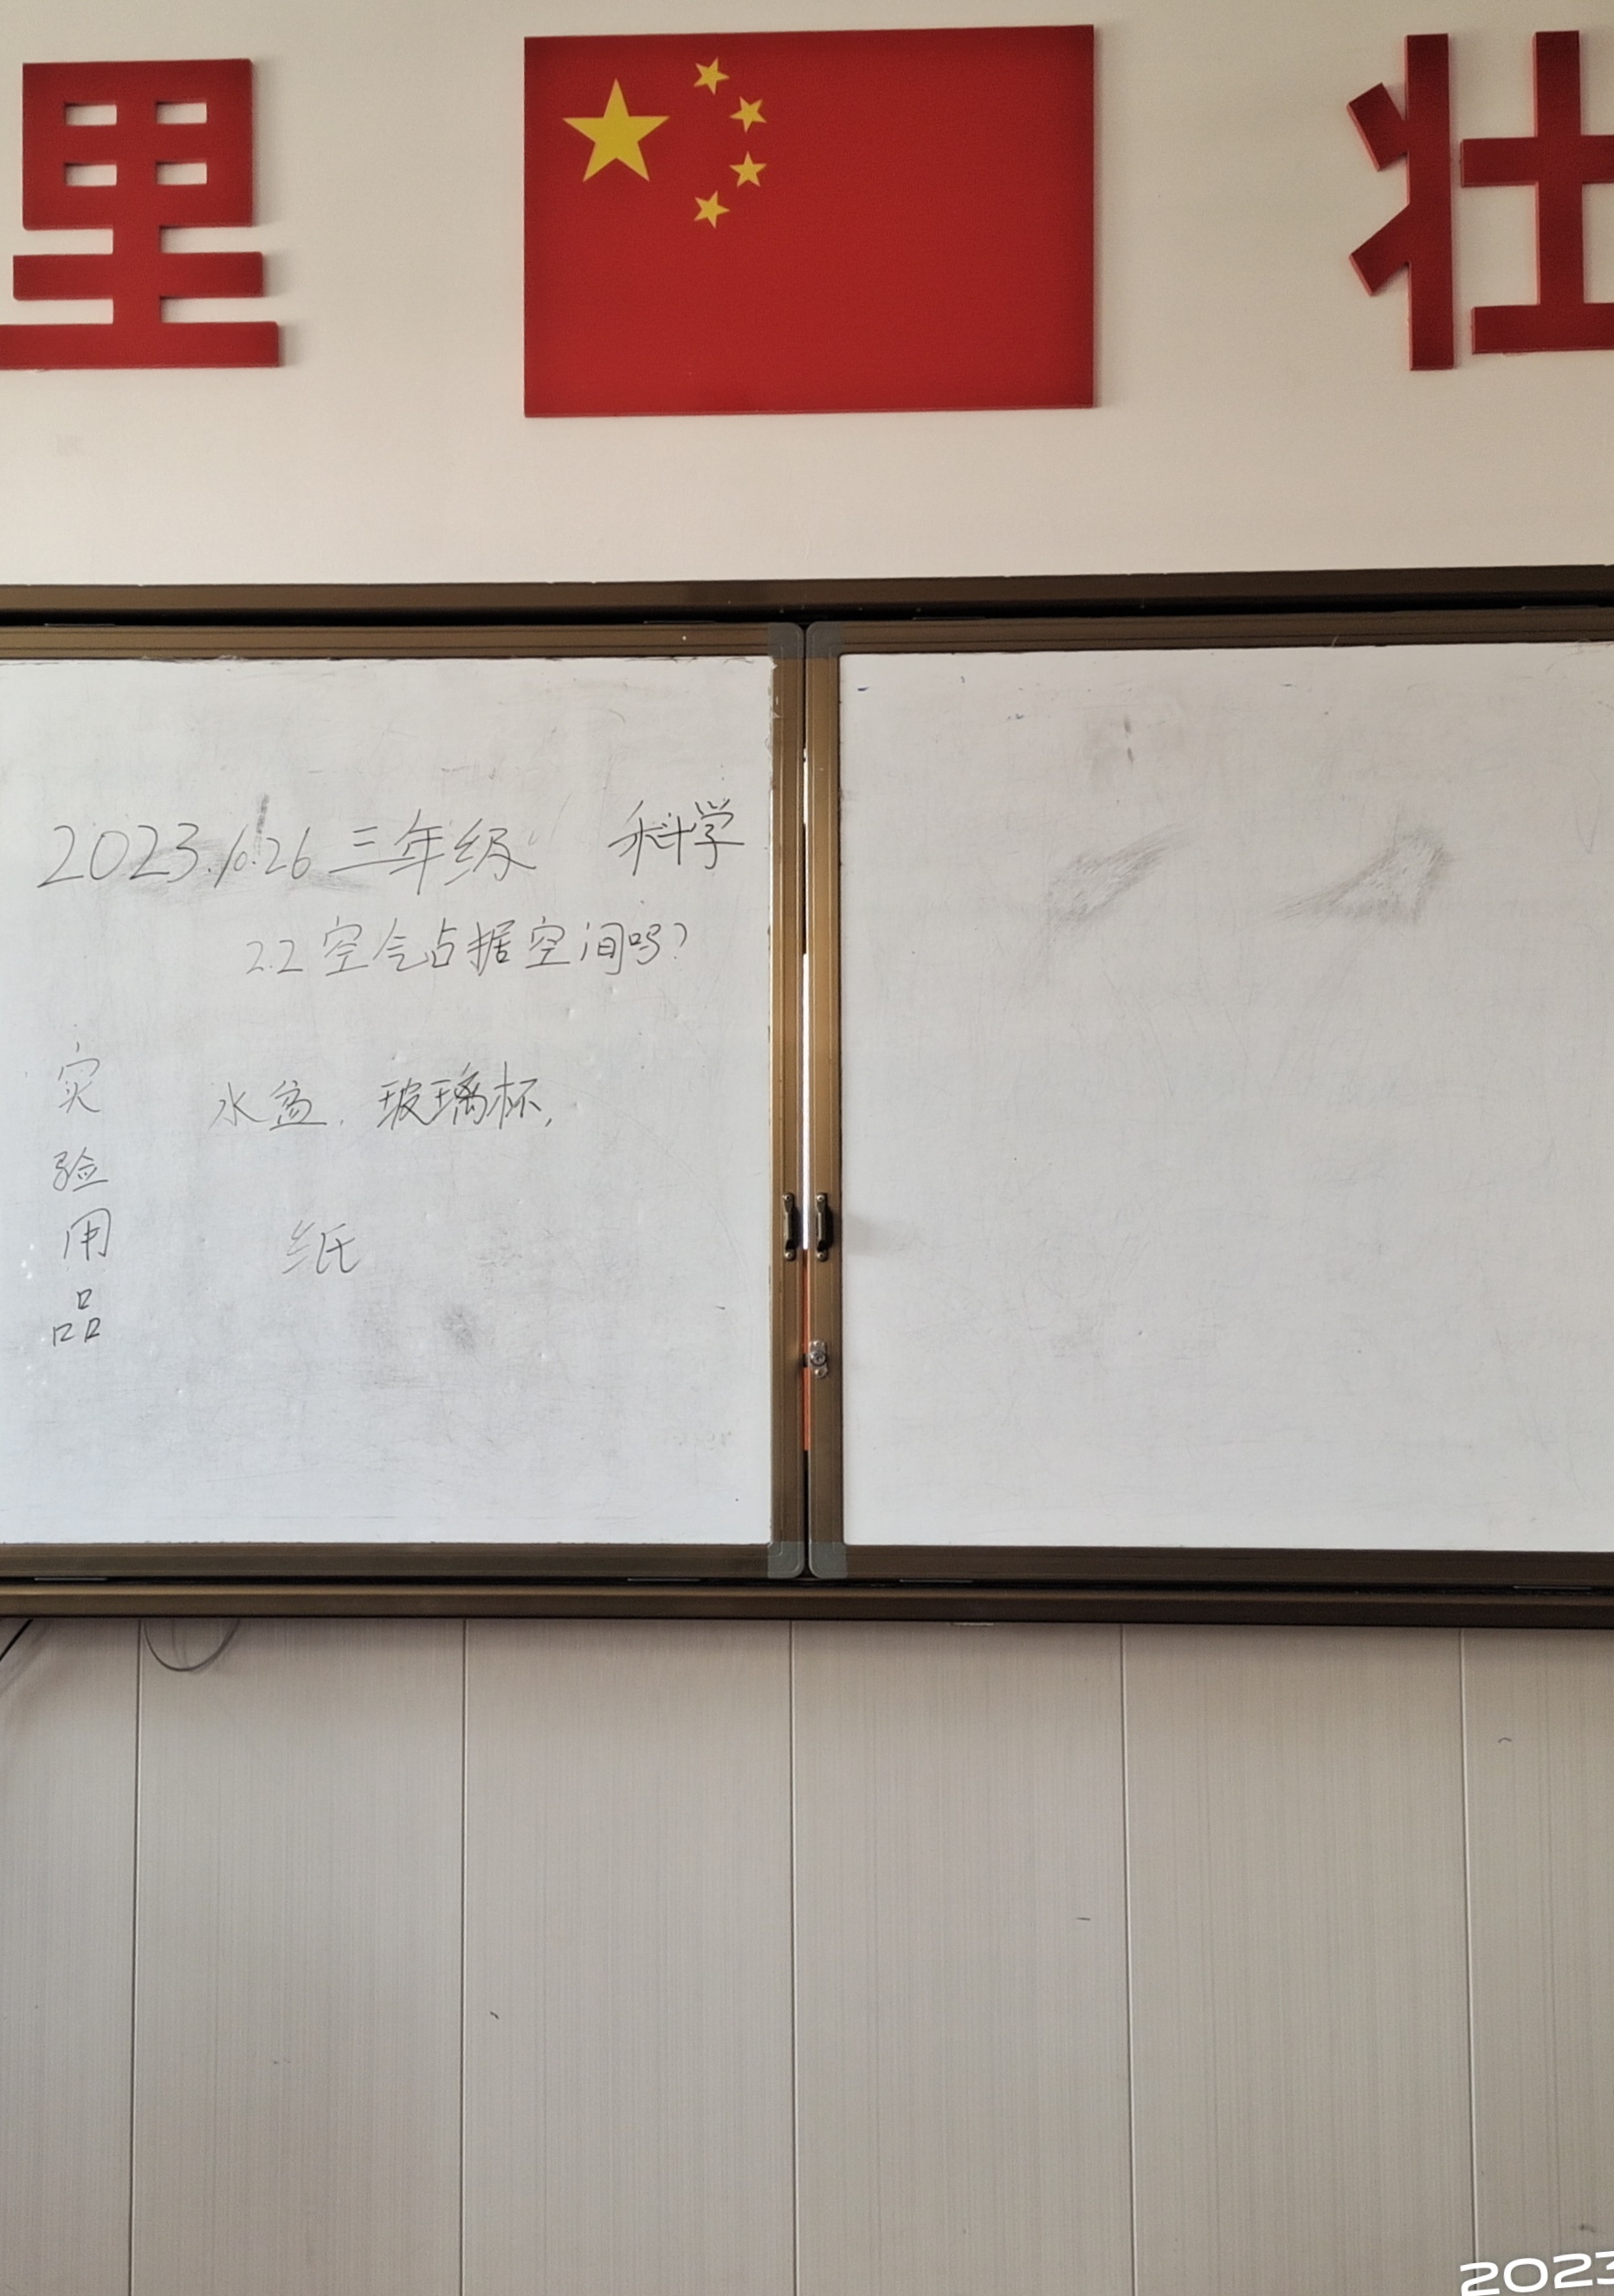 里 壮
2023.10.26 三年级 科学
2.2 空气占据空间吗?
实验用品
水盆. 玻璃杯,
纸
2023